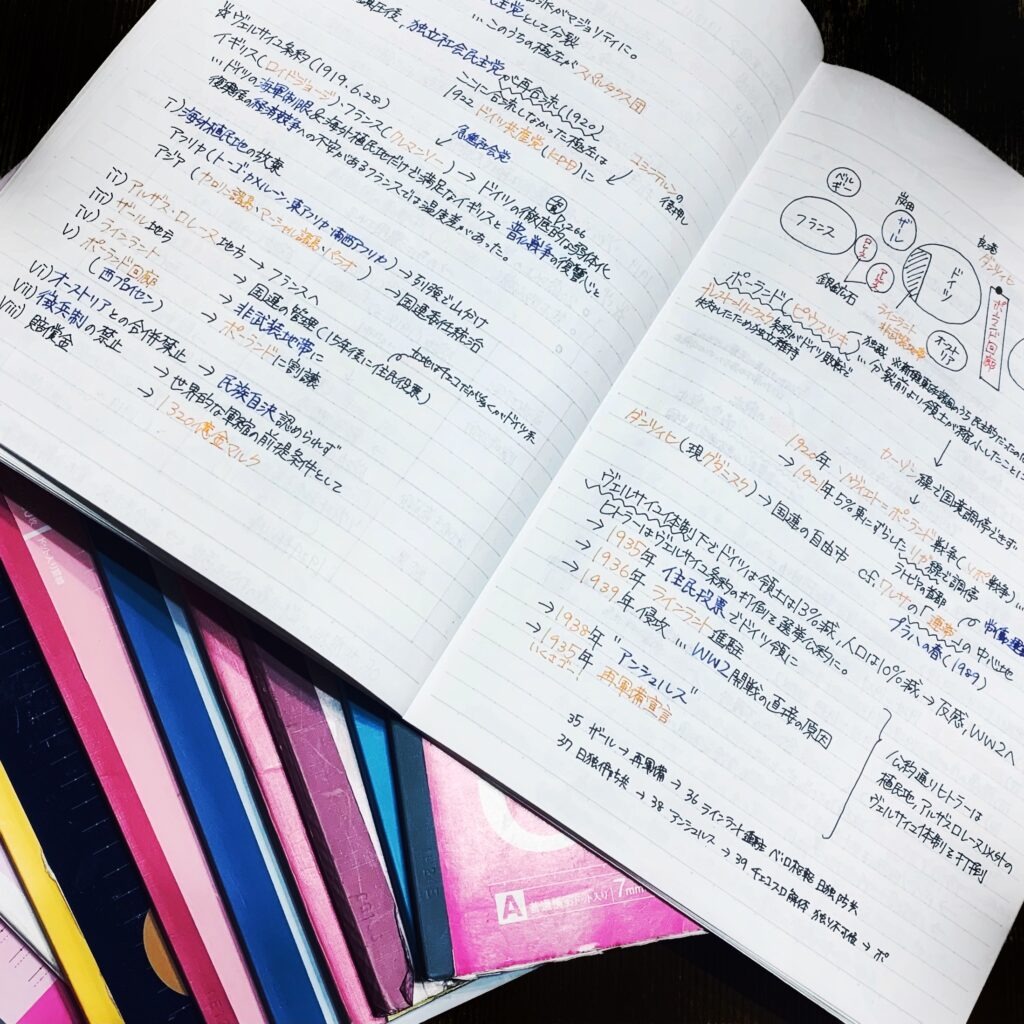 マジョリティに。
主党として分裂
…このうちの極左がスパルタクス団
鎮圧後、独立社会民主党が再合流(1920)
ここに合流しなかった極左は
1922 ドイツ共産党(KPD)に
コミンテルンの後押し
☆ヴェルサイユ条約(1919.6.28)
イギリス(ロイドジョージ)、フランス(クレマンソー)→ドイツの徹底的な弱体化
P.266
…ドイツの海軍制限&海外植民地だけど満足なイギリスと普仏戦争の復讐と
復興後の経済競争への不安があるフランスでは温度差があった。
i)海外植民地の放棄
アフリカ(トーゴ、カメルーン、東アフリカ、南西アフリカ)→列強で山分け
アジア(カロリン諸島、マーシャル諸島、パラオ)→国連委任統治
ii)アルザス・ロレーヌ地方→フランスへ
iii)ザール地方→国連の管理(15年後に住民投票)
iv)ラインラント→非武装地帯に
v)ポーランド回廊→ポーランドに割譲
(西プロイセン)
vi)オーストリアとの合併禁止→民族自決認められず
vii)徴兵制の禁止→世界的な軍縮の前提条件として
viii)賠償金→1320億金マルク
ベルギー
フランス
炭田
ザール
ロレーヌ
アルザス
ドイツ
鉄鉱石
ラインラント
オーストリア
ダンツィヒ
ポーランド回廊
ポーランド(ピウスツキ)
ブレスト=リトフスク条約がドイツ敗戦で
失効したため独立維持
…分裂前より領土が縮小したことに
カーゾン線で国境調停できず
1920年 ソヴィエト=ポーランド戦争(ソポ戦争)…
→1921年 
リガ線で調停
ラトビアの首都
ダンツィヒ(現グダニスク)→国連の自由市 cf.ワレサの「連帯」の中心地
プラハの春(1989)
ヴェルサイユ体制下でドイツは領土は13%減、人口は10%減→反感、WW2へ
ヒトラーはヴェルサイユ条約の打倒を選挙公約に。
→1935年 住民投票でドイツ領に
→1936年 ラインラント進駐
→1939年 侵攻…WW2開戦の直接の原因
→1938年 "アンシュルス"
→1935年 再軍備宣言
公約通りヒトラーは
植民地、アルザスロレーヌ以外の
ヴェルサイユ体制を打倒
35 ザール→再軍備→36 ラインラント進駐 ベロ枢軸 日独防共
37 日独伊防共→38 アンシュルス→39 チェコスロ解体 独ソ不可侵→ポ
A 普通横罫 ドット入り 7mm